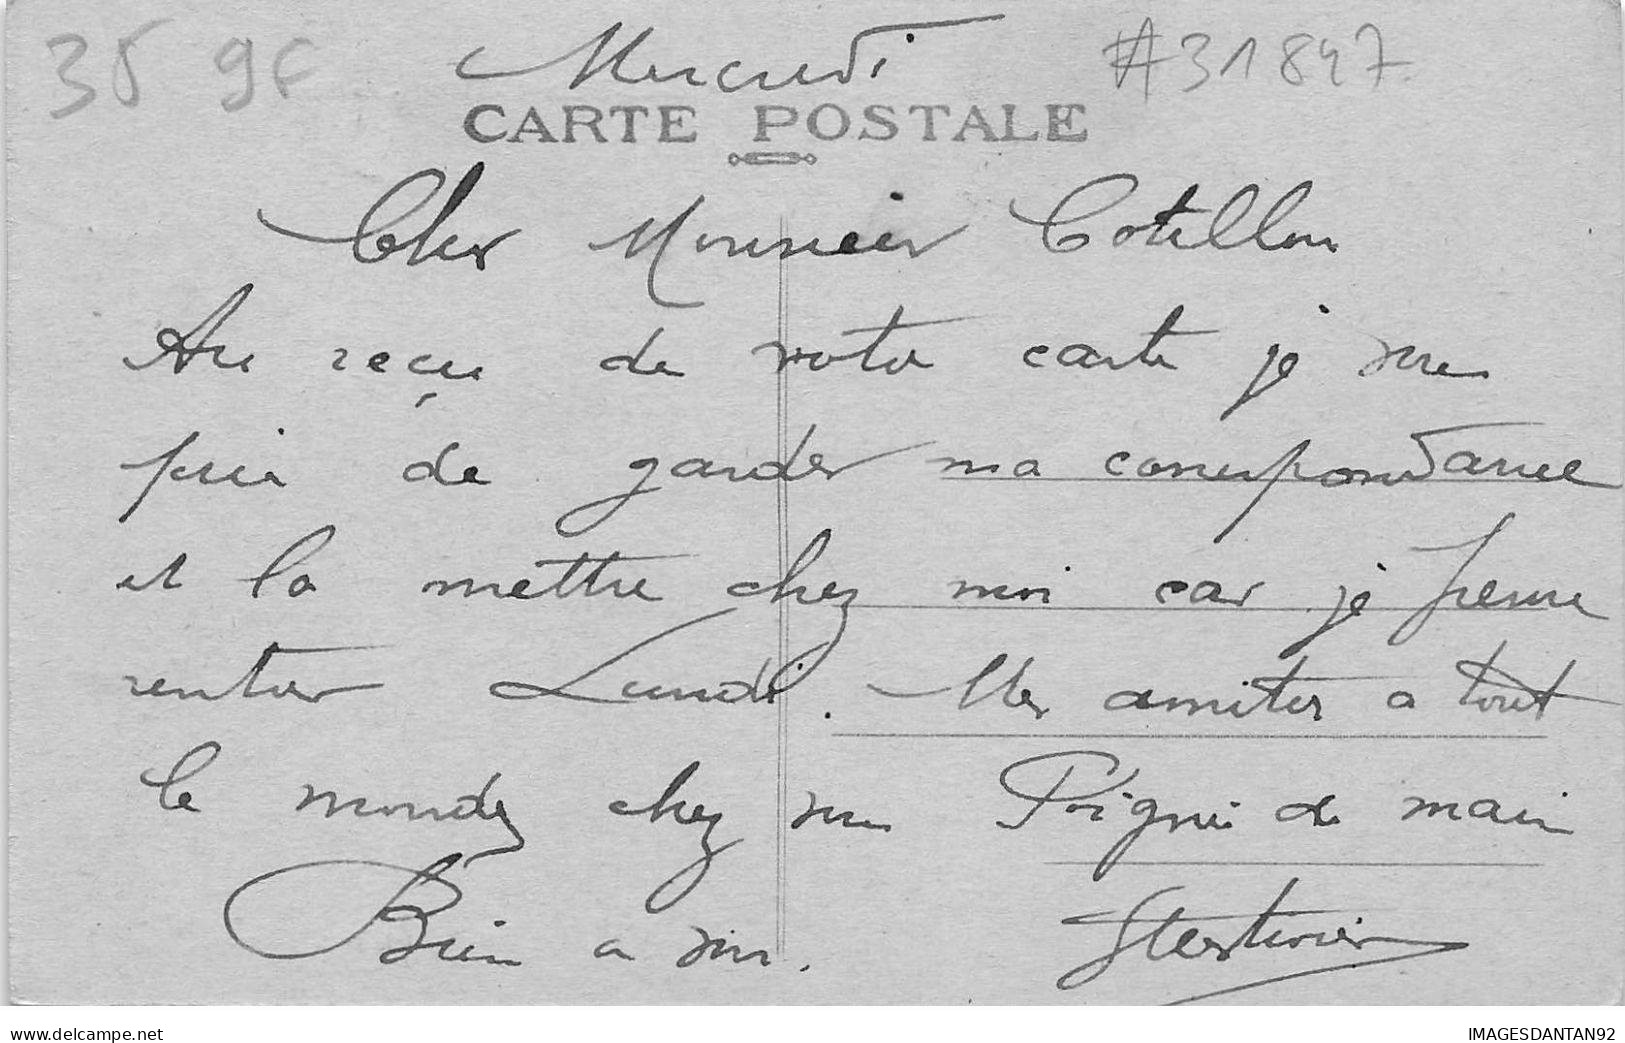 35 9F Mercredi #31847
CARTE POSTALE
Cher Monsieur Cotillon
Au reçu de votre carte je vous
prie de garder ma correspondance
et la mettre chez moi car je pense
rentrer Lundi. Mes amitiés a tout
le monde chez vous Poignée de main
Bien a vous.
www.delcampe.net
IMAGESDANTAN92